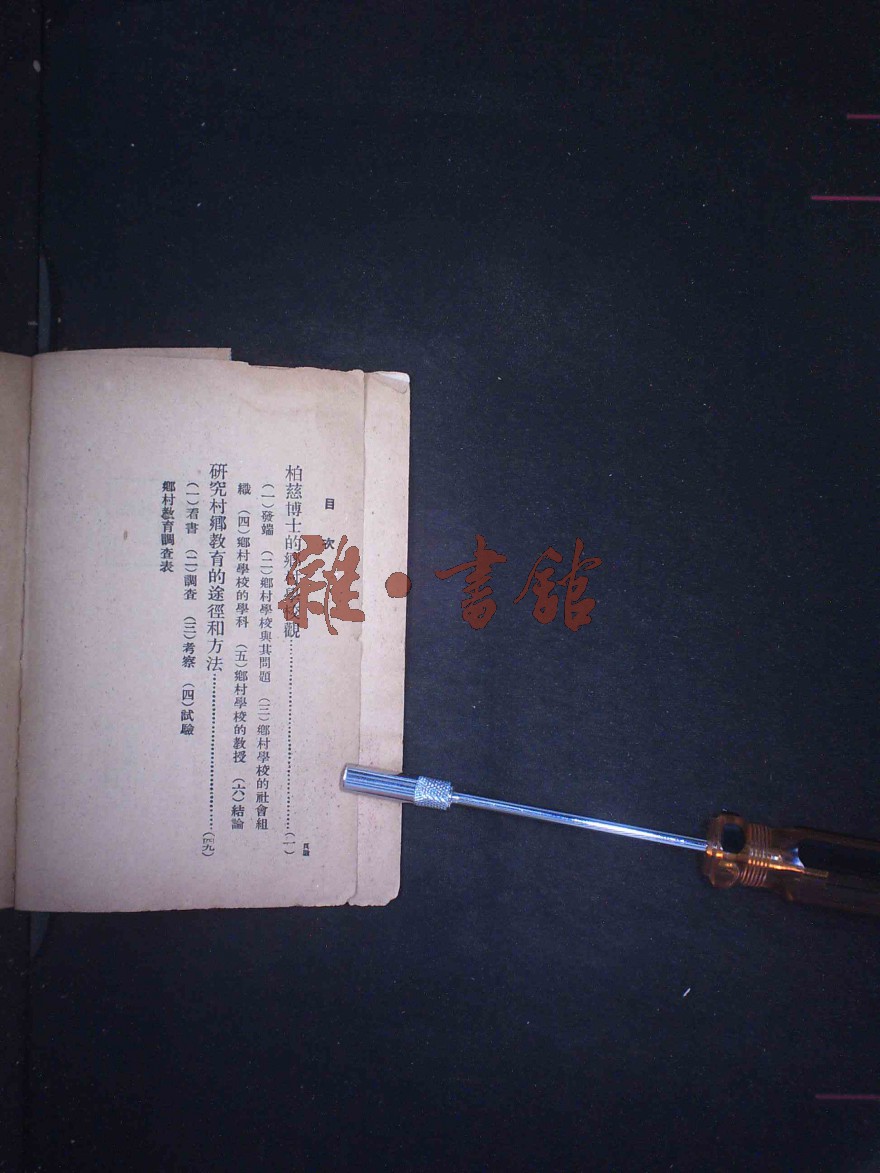 目次
柏慈博士的鄉村學校觀……(一)
(一)發端 (二)鄉村學校與其問題 (三)鄉村學校的社會組
織 (四)鄉村學校的學科 (五)鄉村學校的教授 (六)結論
研究村鄉教育的途徑和方法……(四九)
(一)看書 (二)調查 (三)考察 (四)試驗
鄉村教育調查表
雜·書館